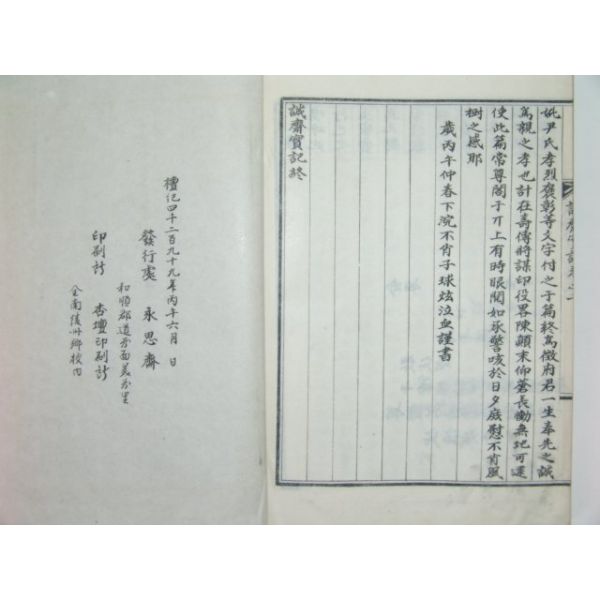 妣尹氏孝烈褒彰等文字付之于篇終爲徵府君一生奉先之誠
爲親之孝也計在壽傳將謀印役畧陳顚末仰蒼長慟無地可逮
使此篇常尊閣于丌上有時眼閱如承警咳於日夕庶慰不肖風
樹之感耶
歲丙午仲春下浣不肖子球炫泣血謹書
誠齋實記終
檀紀四千二百九十九年丙午六月 日
發行處 永思齋
和順郡道谷面
印刷所 杏壇印刷所
全南綾州鄕校內